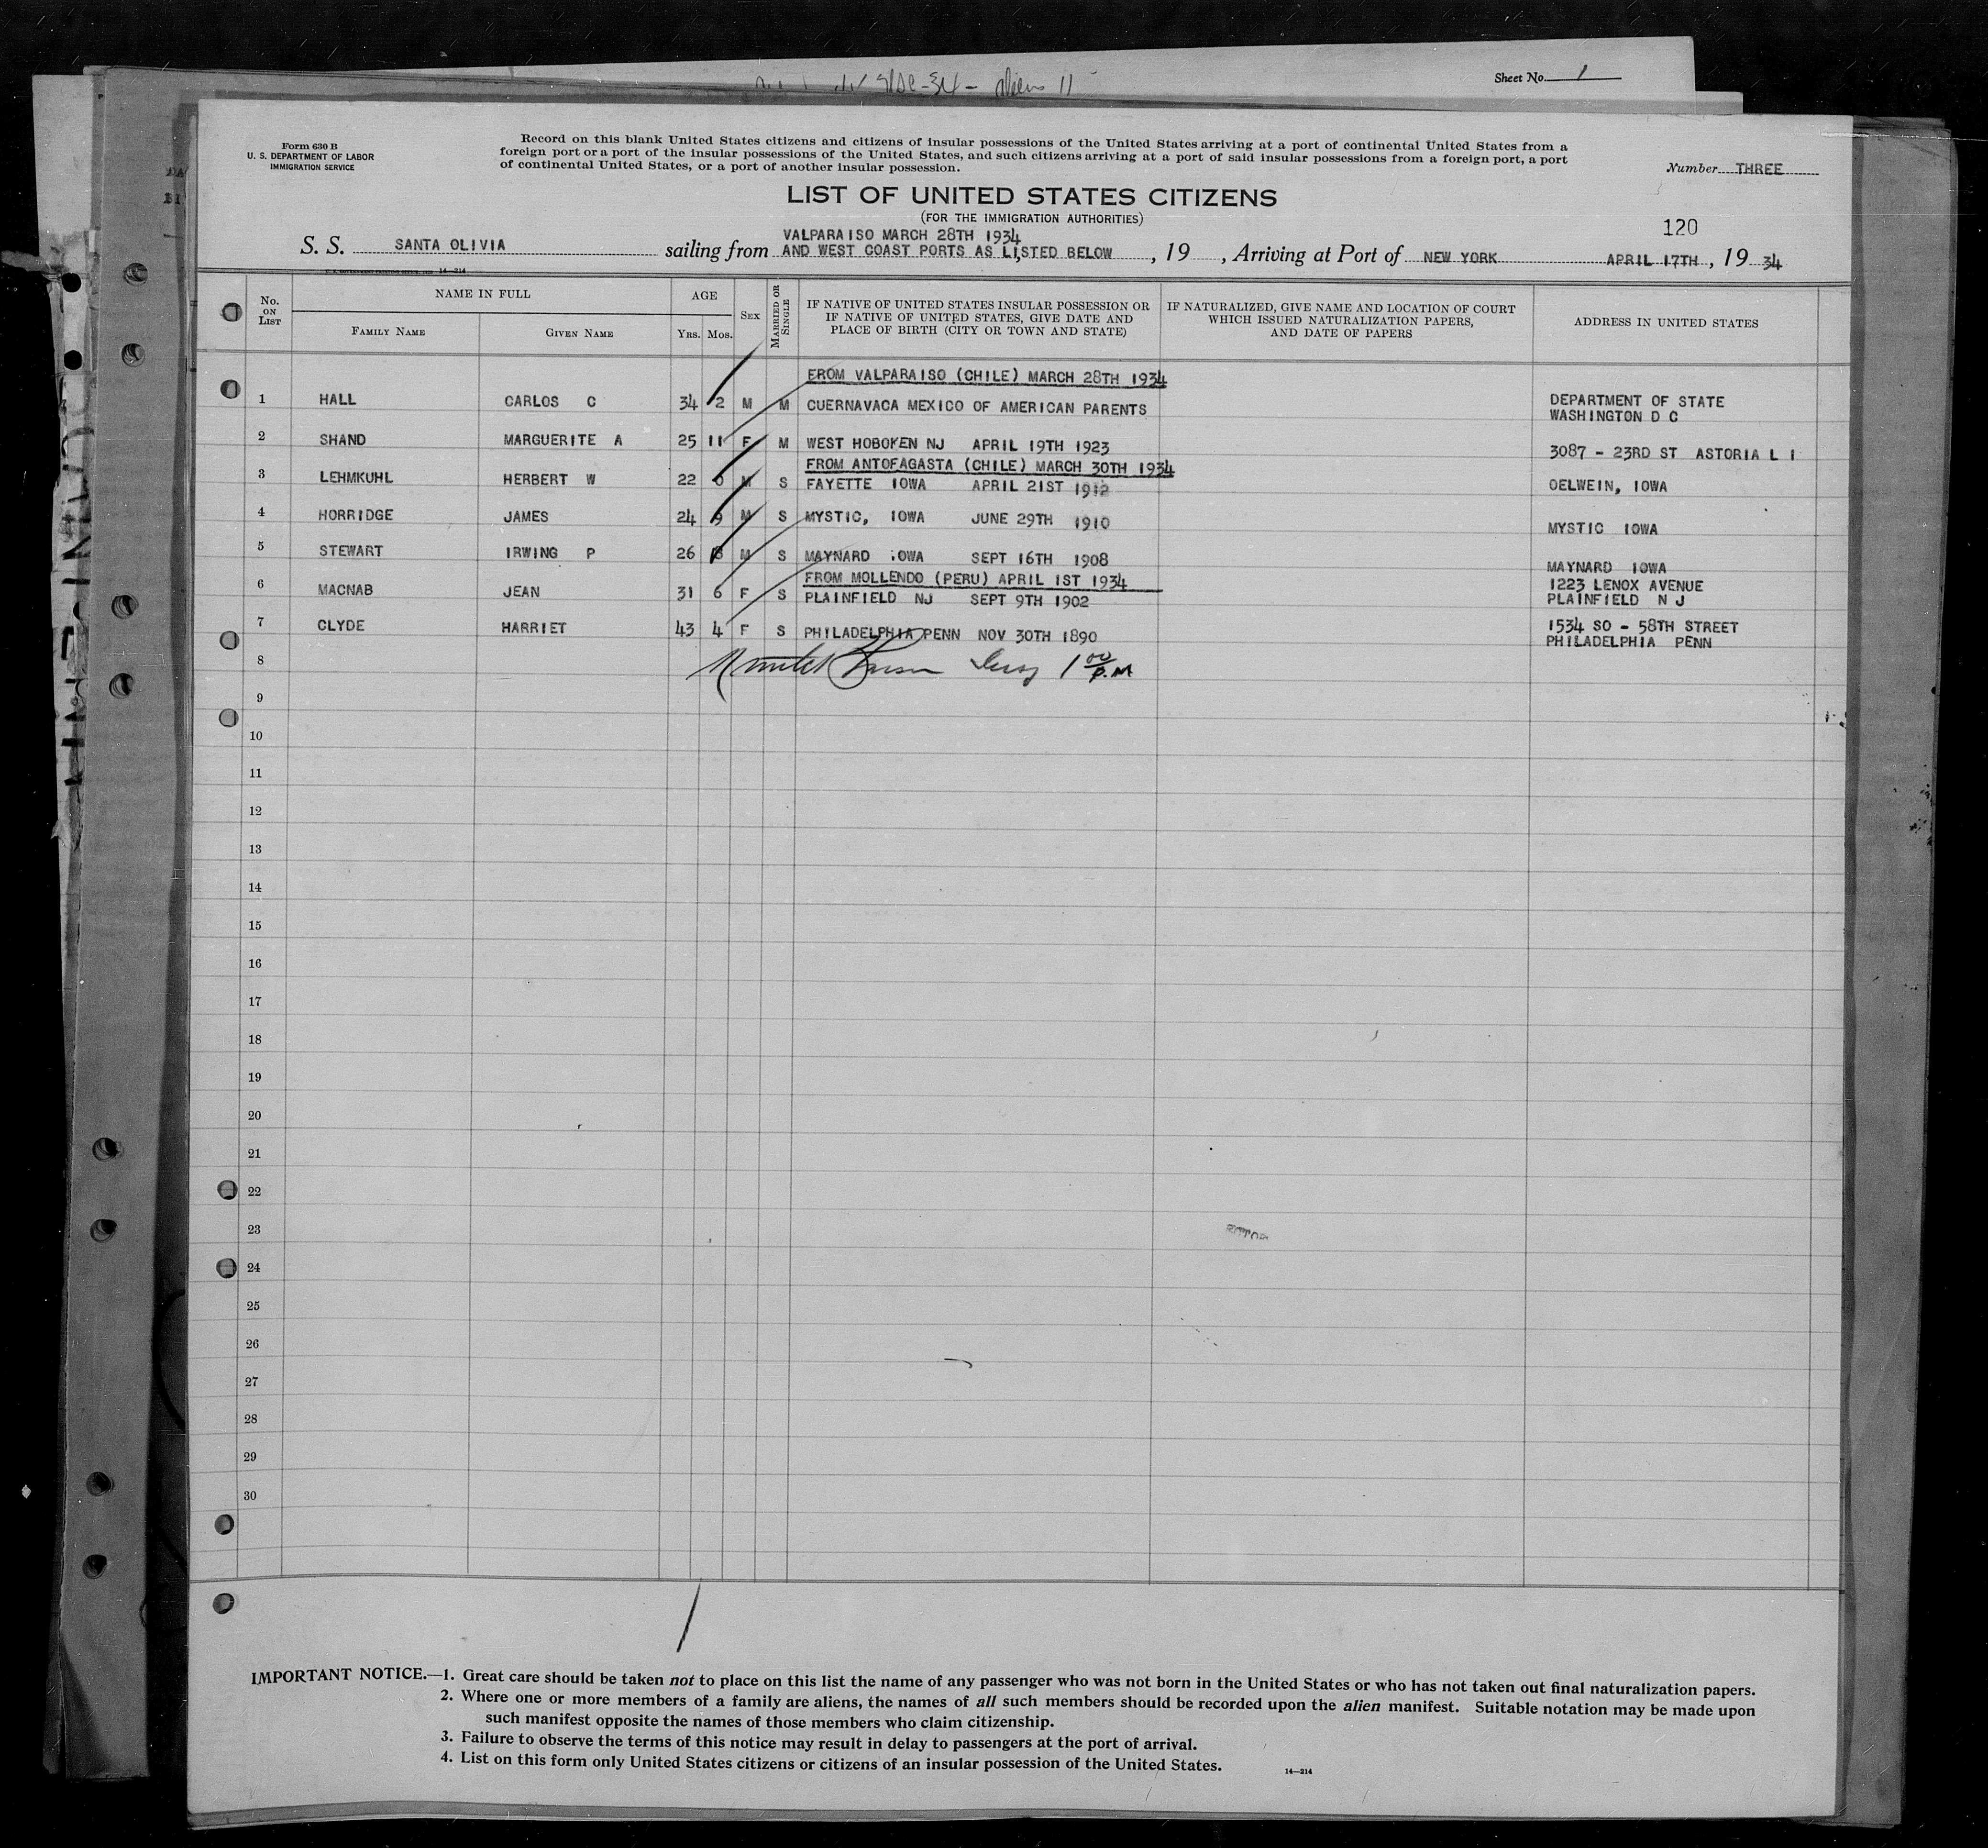 Sheet No. 1
Form 630 B
U. S. DEPARTMENT OF LABOR
IMMIGRATION SERVICE
Record on this blank United States citizens and citizens of insular possessions of the United States arriving at a port of continental United States from a
foreign port or a port of the insular possessions of the United States, and such citizens arriving at a port of said insular possessions from a foreign port, a port
of continental United States, or a port of another insular possession.
Number THREE
LIST OF UNITED STATES CITIZENS
(FOR THE IMMIGRATION AUTHORITIES)
120
VALPARAISO MARCH 28TH 1934
S. S. SANTA OLIVIA sailing from AND WEST COAST PORTS AS LISTED BELOW , 19 , Arriving at Port of NEW YORK APRIL 17TH , 19 34
14—214
No. ON LIST
NAME IN FULL
FAMILY NAME
GIVEN NAME
AGE
Yrs. Mos.
SEX
MARRIED OR SINGLE
IF NATIVE OF UNITED STATES INSULAR POSSESSION OR
IF NATIVE OF UNITED STATES, GIVE DATE AND
PLACE OF BIRTH (CITY OR TOWN AND STATE)
IF NATURALIZED, GIVE NAME AND LOCATION OF COURT
WHICH ISSUED NATURALIZATION PAPERS,
AND DATE OF PAPERS
ADDRESS IN UNITED STATES
FROM VALPARAISO (CHILE) MARCH 28TH 1934
1 HALL CARLOS C 34 2 M M CUERNAVACA MEXICO OF AMERICAN PARENTS DEPARTMENT OF STATE
WASHINGTON D C
2 SHAND MARGUERITE A 25 11 F M WEST HOBOKEN NJ APRIL 19TH 1923 3087 - 23RD ST ASTORIA L I
FROM ANTOFAGASTA (CHILE) MARCH 30TH 1934
3 LEHMKUHL HERBERT W 22 0 M S FAYETTE IOWA APRIL 21ST 1912 OELWEIN, IOWA
4 HORRIDGE JAMES 24 9 M S MYSTIC, IOWA JUNE 29TH 1910 MYSTIC IOWA
5 STEWART IRWING P 26 M S MAYNARD IOWA SEPT 16TH 1908 MAYNARD IOWA
FROM MOLLENDO (PERU) APRIL 1ST 1934
6 MACNAB JEAN 31 6 F S PLAINFIELD NJ SEPT 9TH 1902 1223 LENOX AVENUE
PLAINFIELD N J
7 CLYDE HARRIET 43 4 F S PHILADELPHIA PENN NOV 30TH 1890 1534 SO - 58TH STREET
PHILADELPHIA PENN
8 1 00 P.M
9
10
11
12
13
14
15
16
17
18
19
20
21
22
23
24
25
26
27
28
29
30
IMPORTANT NOTICE.—1. Great care should be taken not to place on this list the name of any passenger who was not born in the United States or who has not taken out final naturalization papers.
2. Where one or more members of a family are aliens, the names of all such members should be recorded upon the alien manifest. Suitable notation may be made upon
such manifest opposite the names of those members who claim citizenship.
3. Failure to observe the terms of this notice may result in delay to passengers at the port of arrival.
4. List on this form only United States citizens or citizens of an insular possession of the United States.
14—214